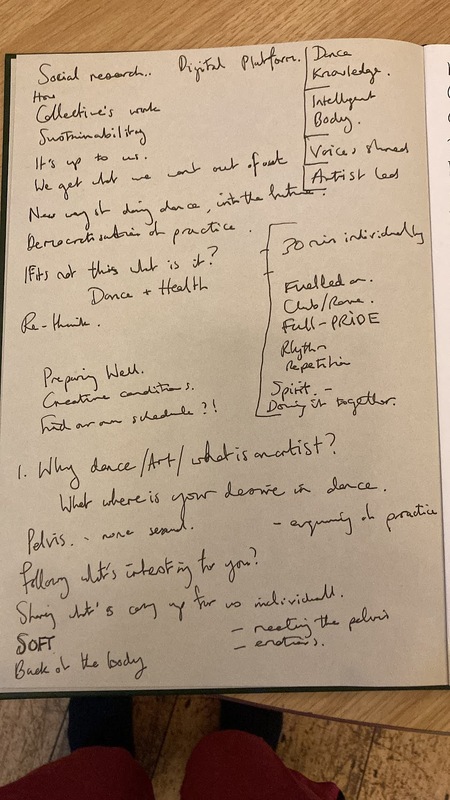 Social research.. Digital Platform.
Dance
Knowledge.
Intelligent
Body.
Voices shared
Artist Led
How
Collective's work
Sustainability
It's up to us.
We get what we want out of
New way of doing dance, into the future.
Democratisation of practice.
If its not this what is it?
Dance + Health
Re-think.
30 min individually
Fuelled on.
Club/Rave.
Full-PRIDE
Rhythm
Repetition
Spirit. -
Doing it together.
Preparing Well.
Creative conditions.
Find our own schedule ?!
1. Why dance/Art/what is an artist?
What where is your desire in dance.
Pelvis. - none sexual.
- of practice
Following what's intesting for you?
Sharing what's comg up for us individuall.
SOFT
Back of the body
- meeting the pelvis
-